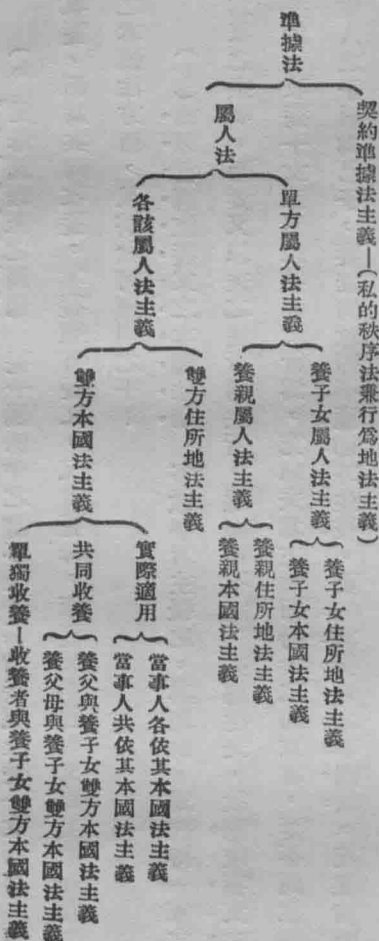 準據法
契約準據法主義—(私的秩序法兼行爲地法主義)
屬人法
單方屬人法主義
養子女屬人法主義
養子女住所地法主義
養子女本國法主義
養親屬人法主義
養親住所地法主義
養親本國法主義
各該屬人法主義
雙方住所地法主義
雙方本國法主義
實際適用
當事人各依其本國法主義
當事人共依其本國法主義
共同收養
養父與養子女雙方本國法主義
養父母與養子女雙方本國法主義
單獨收養—收養者與養子女雙方本國法主義